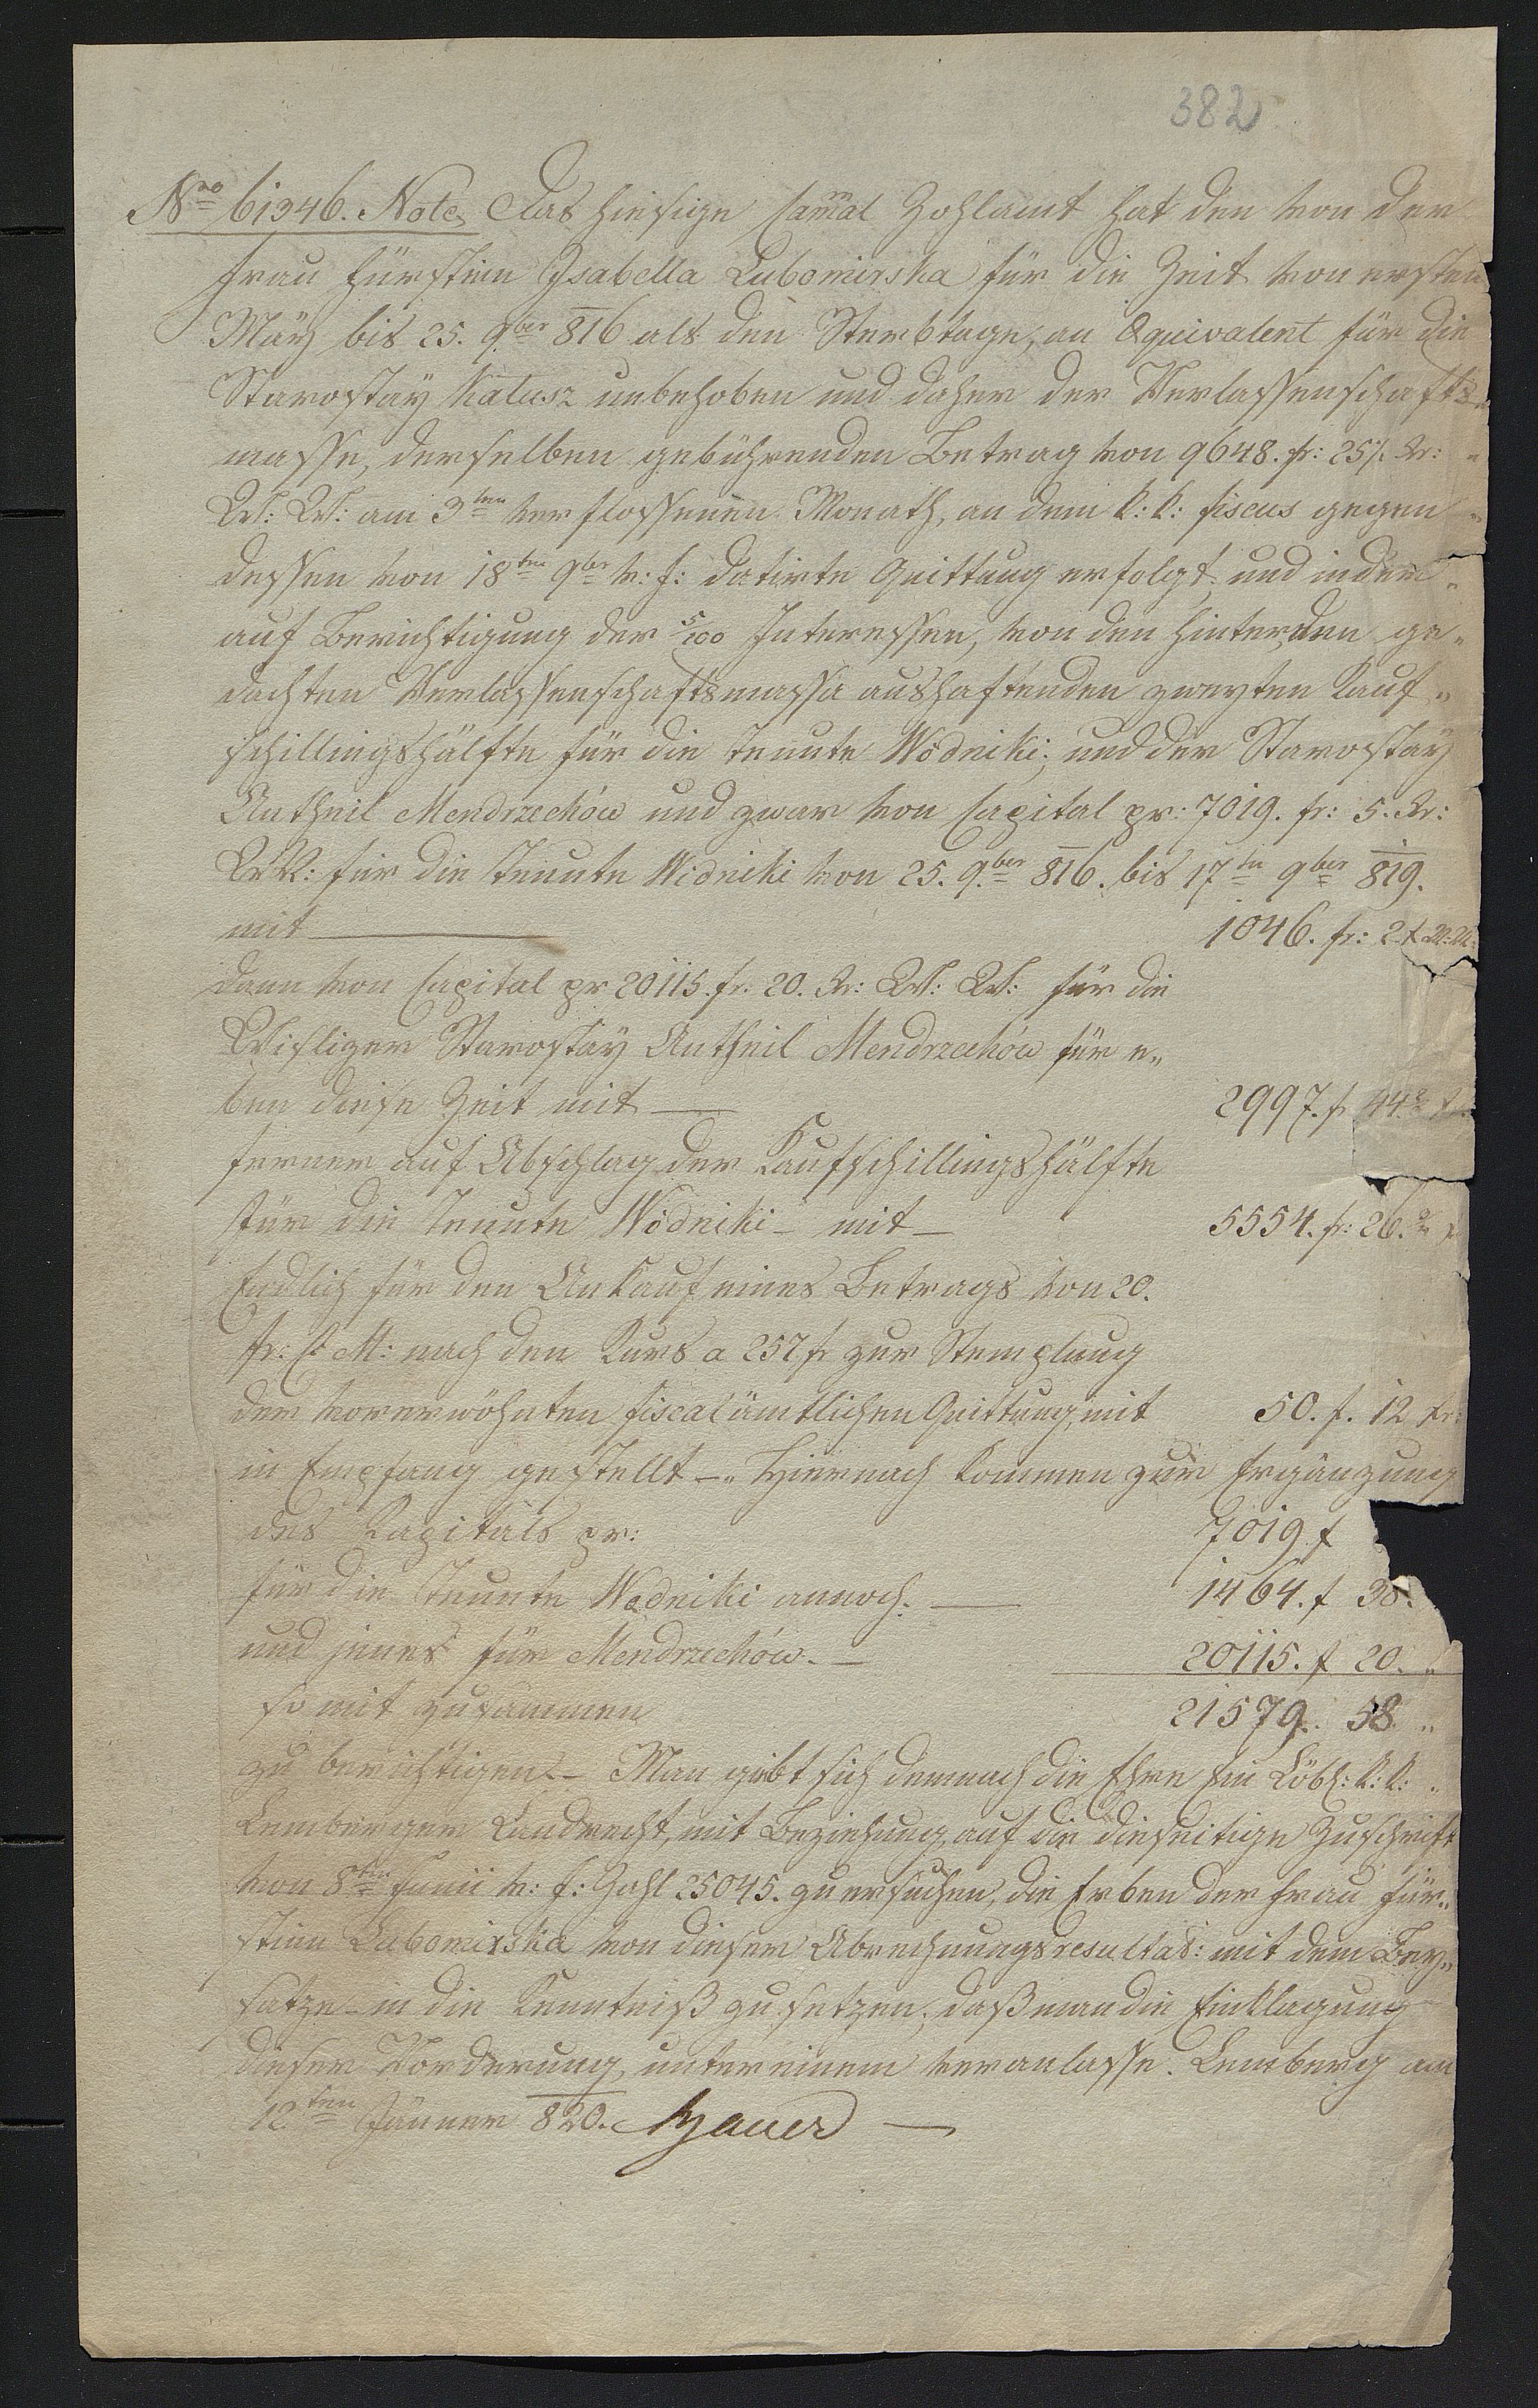 382
Nro 61346. Note. Das hiesige Cammal Zahlamt hat den von der
Frau Fürstinn Isabella Lubomirska für die Zeit von ersten
März bis 25. 9ber 816 als den Sterbtage, an Equivalent für die
Starostay Kalusz unbehoben und daher der Verlassenschafts„
masse, derselben gebührenden Betrag von 9648. fr: 25 Xr:
W: W: am 3ten verflossenen Monath, an dem k: k: fiscus gegen
dessen von 18ten 9ber v: J: datirte Quittung erfolgt, und indem
auf Berichtigung der 5/100 Interessen, von den hinter den ge„
dachten Verlassenschaftsmassa aushaftenden zweyten Kauf„
schillingshälfte für die Tenute Wódniki; und der Starostay
Antheil Mendrzechów und zwar von Capital pr: 7019. fr: 5. Xr:
W W: für die Tenute Wódniki von 25. 9ber 816. bis 17tn 9ber 819.
mit 1046. fr: 2
dann von Capital pr 20115. fr: 20. Xr: W: W: für die
Wisliger Starostay Antheil Mendrzechów für e„
ben diese Zeit mit — 2997. f 44
ferner auf Abschlag der Kaufschillingshälfte
für die Tenute Wódniki — mit — 5554. fr: 26.
Endlich für den Ankauf eines Betrags von 20.
fr: C: M: nach den Kurs a 251 fr zur Stemplung
der vorerwöhnten fiscalämtlichen Quittung, mit 50. f. 12 Xr:
in Empfang gestellt —„ Hiernach kommen zur Ergänzung
des Kapitals pr: 7019. f
für die Tenute Wodniki annoch. — 1464. f 38.
und jenes für Mendrzechów. — 20115. f 20. „
so mit zusammen 21579. 58. „
zu berichtigen. — Man gibt sich demnach die Ehre Ein Löbl: k: k: „
Lemberger Landrecht, mit Beziehung auf die dieseitige Zuschrift
von 8ten Junii v: J: Zahl 25045. zu ersuchen, die Erben der Frau Für„
stinn Lubomirska von diesem Abrechnungsresultat: mit dem Bey„
satze — in die Kenntniß zu setzen, daß man die Einklagung
dieser Vorderung, unter einem veranlasse. Lemberg am
12ten Jänner 820. Hauer —